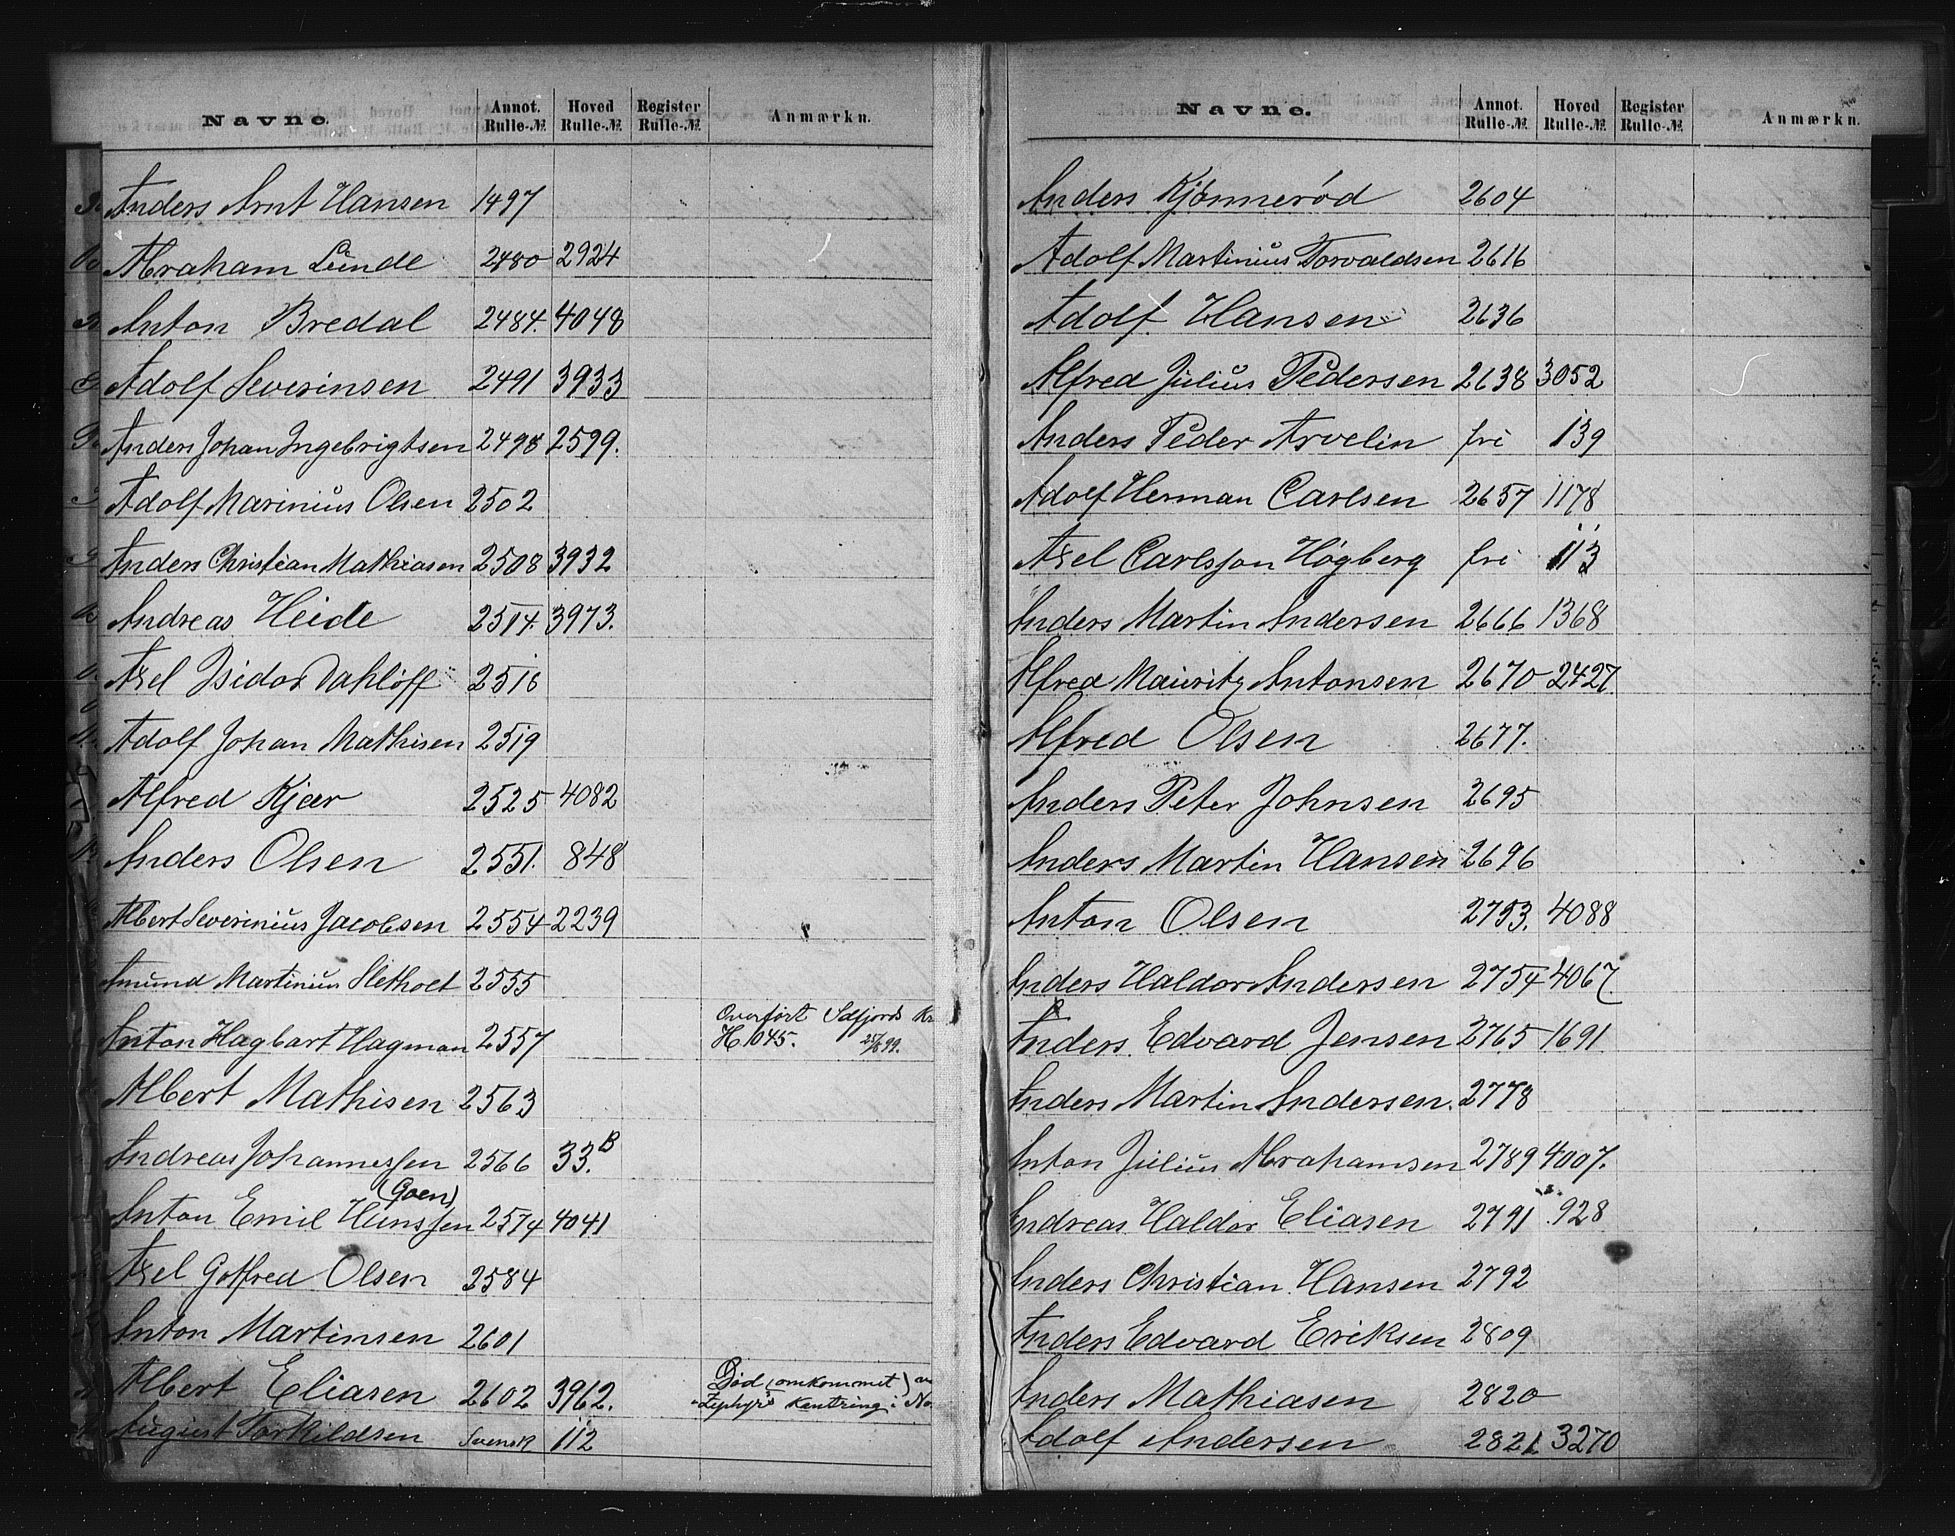 Navne.	Annot. Rulle-№	Hoved Rulle-№	Register Rulle-№	Anmærkn.
Anders Arnt Hansen	1497
Abraham Lunde	2480	2924
Anton Bredal	2484.	4048
Adolf Severinsen	2491	3933
Anders Johan Ingebrigtsen	2498	2599.
Adolf Marinius Olsen	2502
Anders Christian Mathiasen	2508	3932
Andreas Heide	2514.	3973.
Axel Isidor Dahlöff	2516
Adolf Johan Mathisen	2519
Alfred Kjær	2525	4082
Anders Olsen	2551.	848
Albert Severinius Jacobsen	2554	2239
Amund Martinius Sletholt	2555
Anton Hagbart Hagman	2557	Overført Idfjords Kr H. 1045. 99.
Albert Mathisen	2563
Andreas Johannessen	2566	33.B
Anton Emil Hanssen (Goen)	2574	4041
Axel Gotfred Olsen	2584
Anton Martinsen	2601
Albert Eliasen	2602	3962.	Død (omkommet) "Zephyr's kentring i No
August Torkildsen	Svensk	112
Navne.	Annot. Rulle-№	Hoved Rulle-№	Register Rulle-№	Anmærkn.
Anders Kjønnerød	2604
Adolf Martinius Torvaldsen	2616
Adolf Hansen	2636
Alfred Julius Pedersen	2638	3052
Anders Peder Arvelin	fri	139
Adolf Herman Carlsen	2657	1178
Axel Carlsson Högberg	fri	113
Anders Martin Andersen	2666	1368
Alfred Mauritz Antonsen	2670	2427.
Alfred Olsen	2677.
Anders Peter Johnsen	2695
Anders Martin Hansen	2696
Anton Olsen	2753.	4088
Anders Haldor Andersen	2754	4067.
Anders Edvard Jensen	2765	1691
Anders Martin Andersen.	2778
Anton Julius Abrahamsen	2789	4007.
Andreas Haldor Eliasen	2791	928
Anders Christian Hansen	2792
Anders Edvard Eriksen	2809
Anders Mathiasen	2820
Adolf Andersen	2821	3270